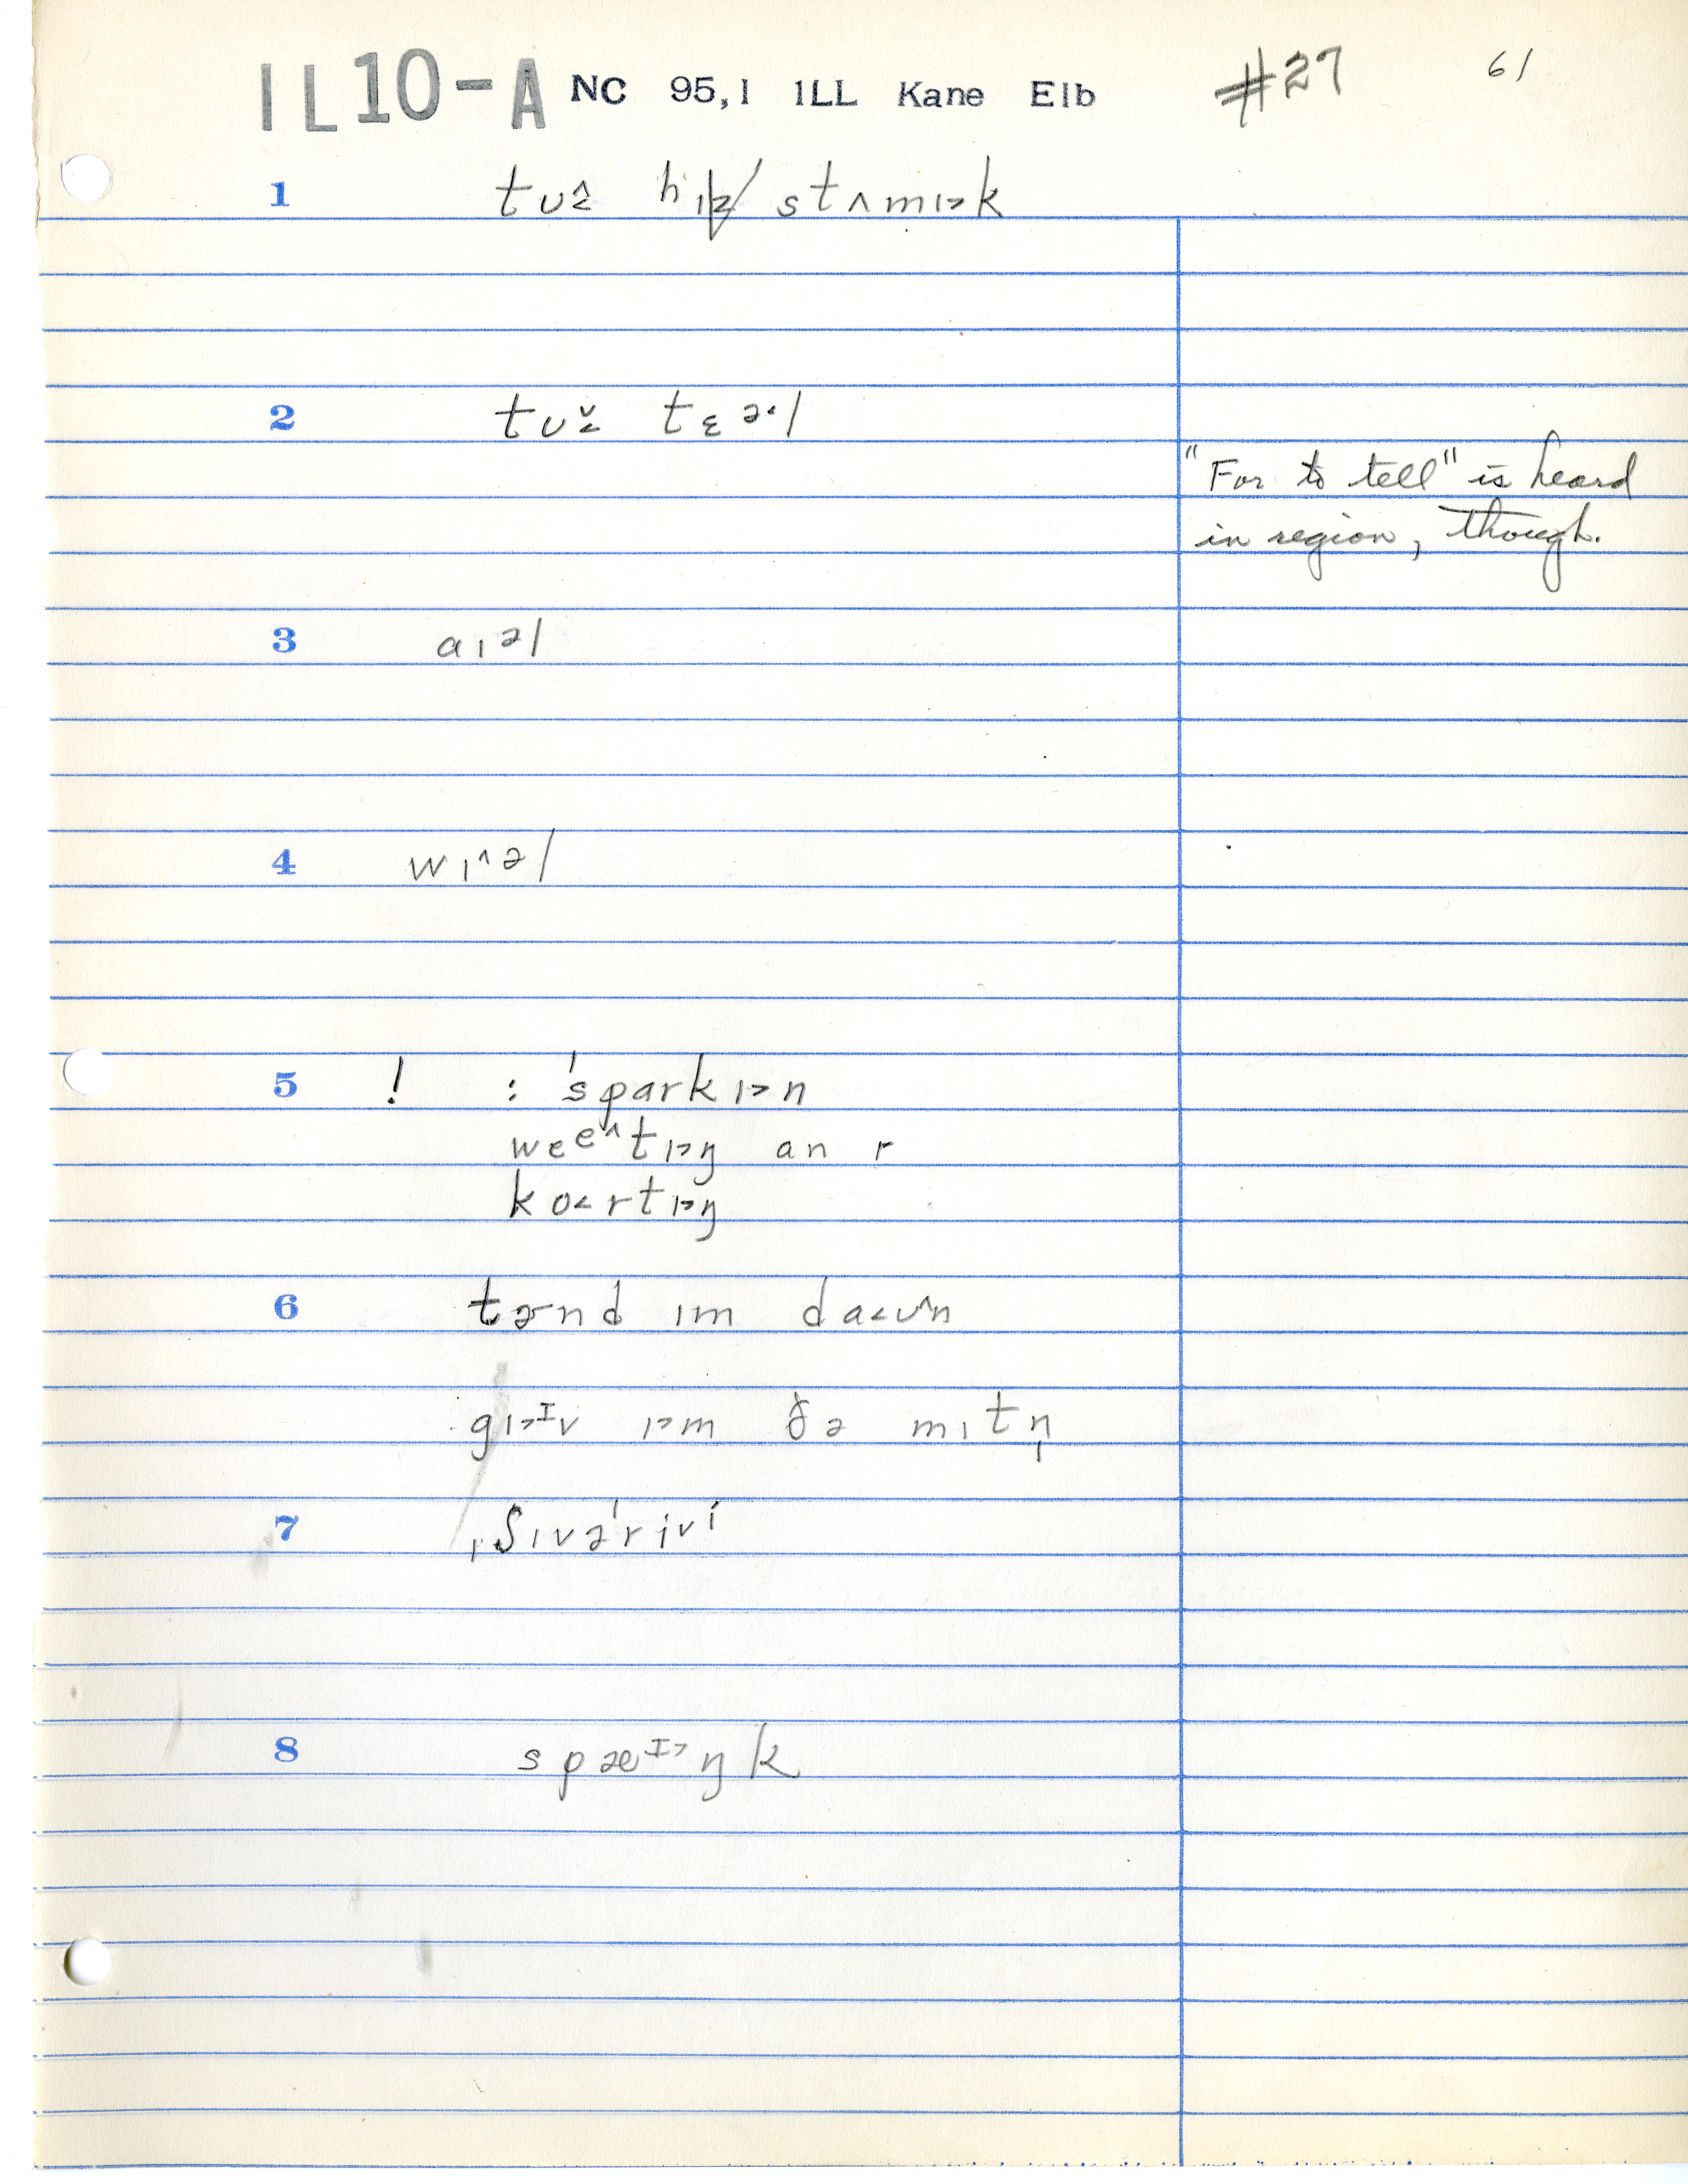 IL10-A NC 95,1 ILL Kane Elb #27 61
1 tʊ̂˂ hɪz stʌmɪ˃k
2 tʊ̌˂ tɛə·l
"For to tell" is heard
in region, though.
3 aɪəl
4 wɪ^əl
5 ! : 'sparkɪ˃n
wee^tɪ˃ŋ an r
ko˂rtɪ˃ŋ
6 tɚnd ɪm da˂ʊ^n
gɪ˃ᴵv ɪ˃m ðə mɪtn̩
7 ˌʃɪvə'rivi
8 spæᴵ˃ŋk